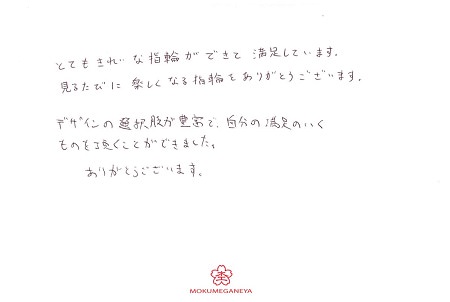 とてもきれいな指輪ができて満足しています。
見るたびに楽しくなる指輪をありがとうございます。
デザインの選択肢が豊富で、自分の満足のいく
ものを頂くことができました。
ありがとうございます。
MOKUMEGANEYA